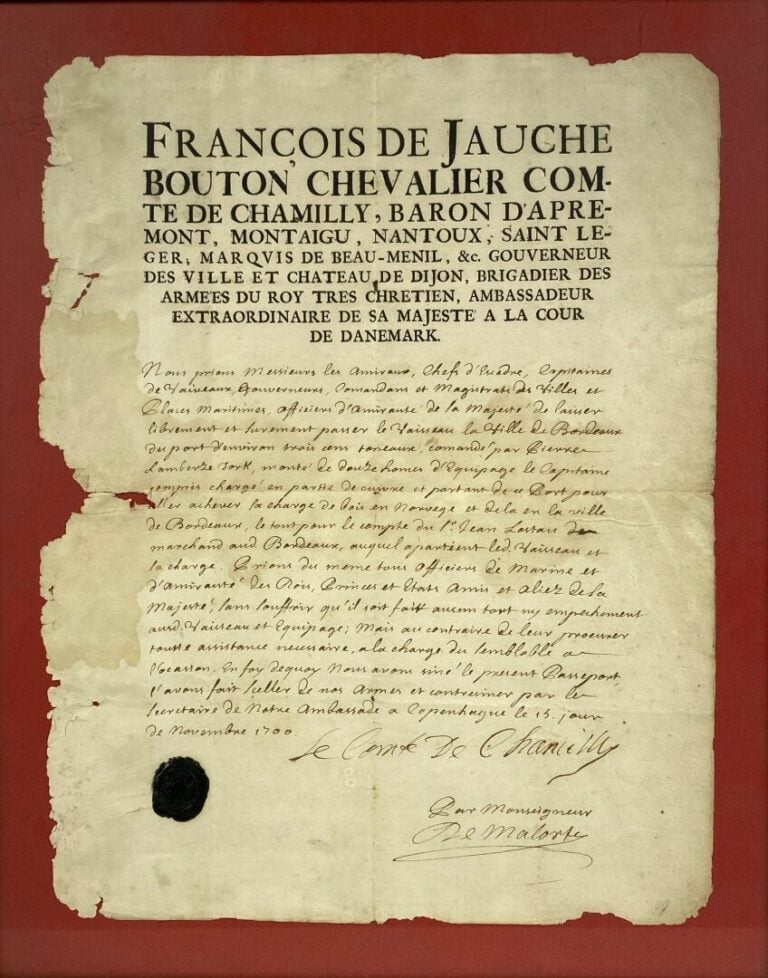 FRANÇOIS DE JAUCHE
BOUTON CHEVALIER COM-
TE DE CHAMILLY, BARON D'APRE-
MONT, MONTAIGU, NANTOUX, SAINT LE-
GER, MARQVIS DE BEAU-MENIL, &c. GOUVERNEUR
DES VILLE ET CHATEAU DE DIJON, BRIGADIER DES
ARMÉES DU ROY TRES CHRETIEN, AMBASSADEUR
EXTRAORDINAIRE DE SA MAJESTÉ A LA COUR
DE DANEMARK.
Nous prions Messieurs les Amiraux, Chefs d'Escadre, Capitaines
de Vaisseaux, Gouverneurs, Comandans et Magistrats des Villes et
Places Maritimes, officiers d'amirauté de sa Majesté de laisser
librement et surement passer le Vaisseau la Ville de Bordeaux
du port d'environ trois cens toneaux, comandé par Pierre
monté de douze homes d'Equipage le Capitaine
compris chargé en partie de cuivre et partant de ce Port pour
aller achever sa charge de bois en Norvege et dela en la ville
de Bordeaux, le tout pour le compte du Sr. Jean
marchand aud Bordeaux, auquel apartient led. Vaisseau et
sa charge. Prions du meme tous officiers de Marine et
d'amirauté des Rois, Princes et Etats Amis et aliez de sa
Majesté, sans souffrir qu'il soit fait aucun tort ny empechement
ausd. Vaisseau et Equipage; Mais au contraire de leur procurer
toutte assistance necessaire, a la charge du semblable a
l'ocasion. En foy dequoy Nous avons siné le present Passeport,
l'avons fait seller de nos Armes et contresiner par le
secretaire de Notre Ambassade a Copenhague le 15. jour
de Novembre 1700.
Le Comte De Chamilly
Par Monseigneur
De Malorte